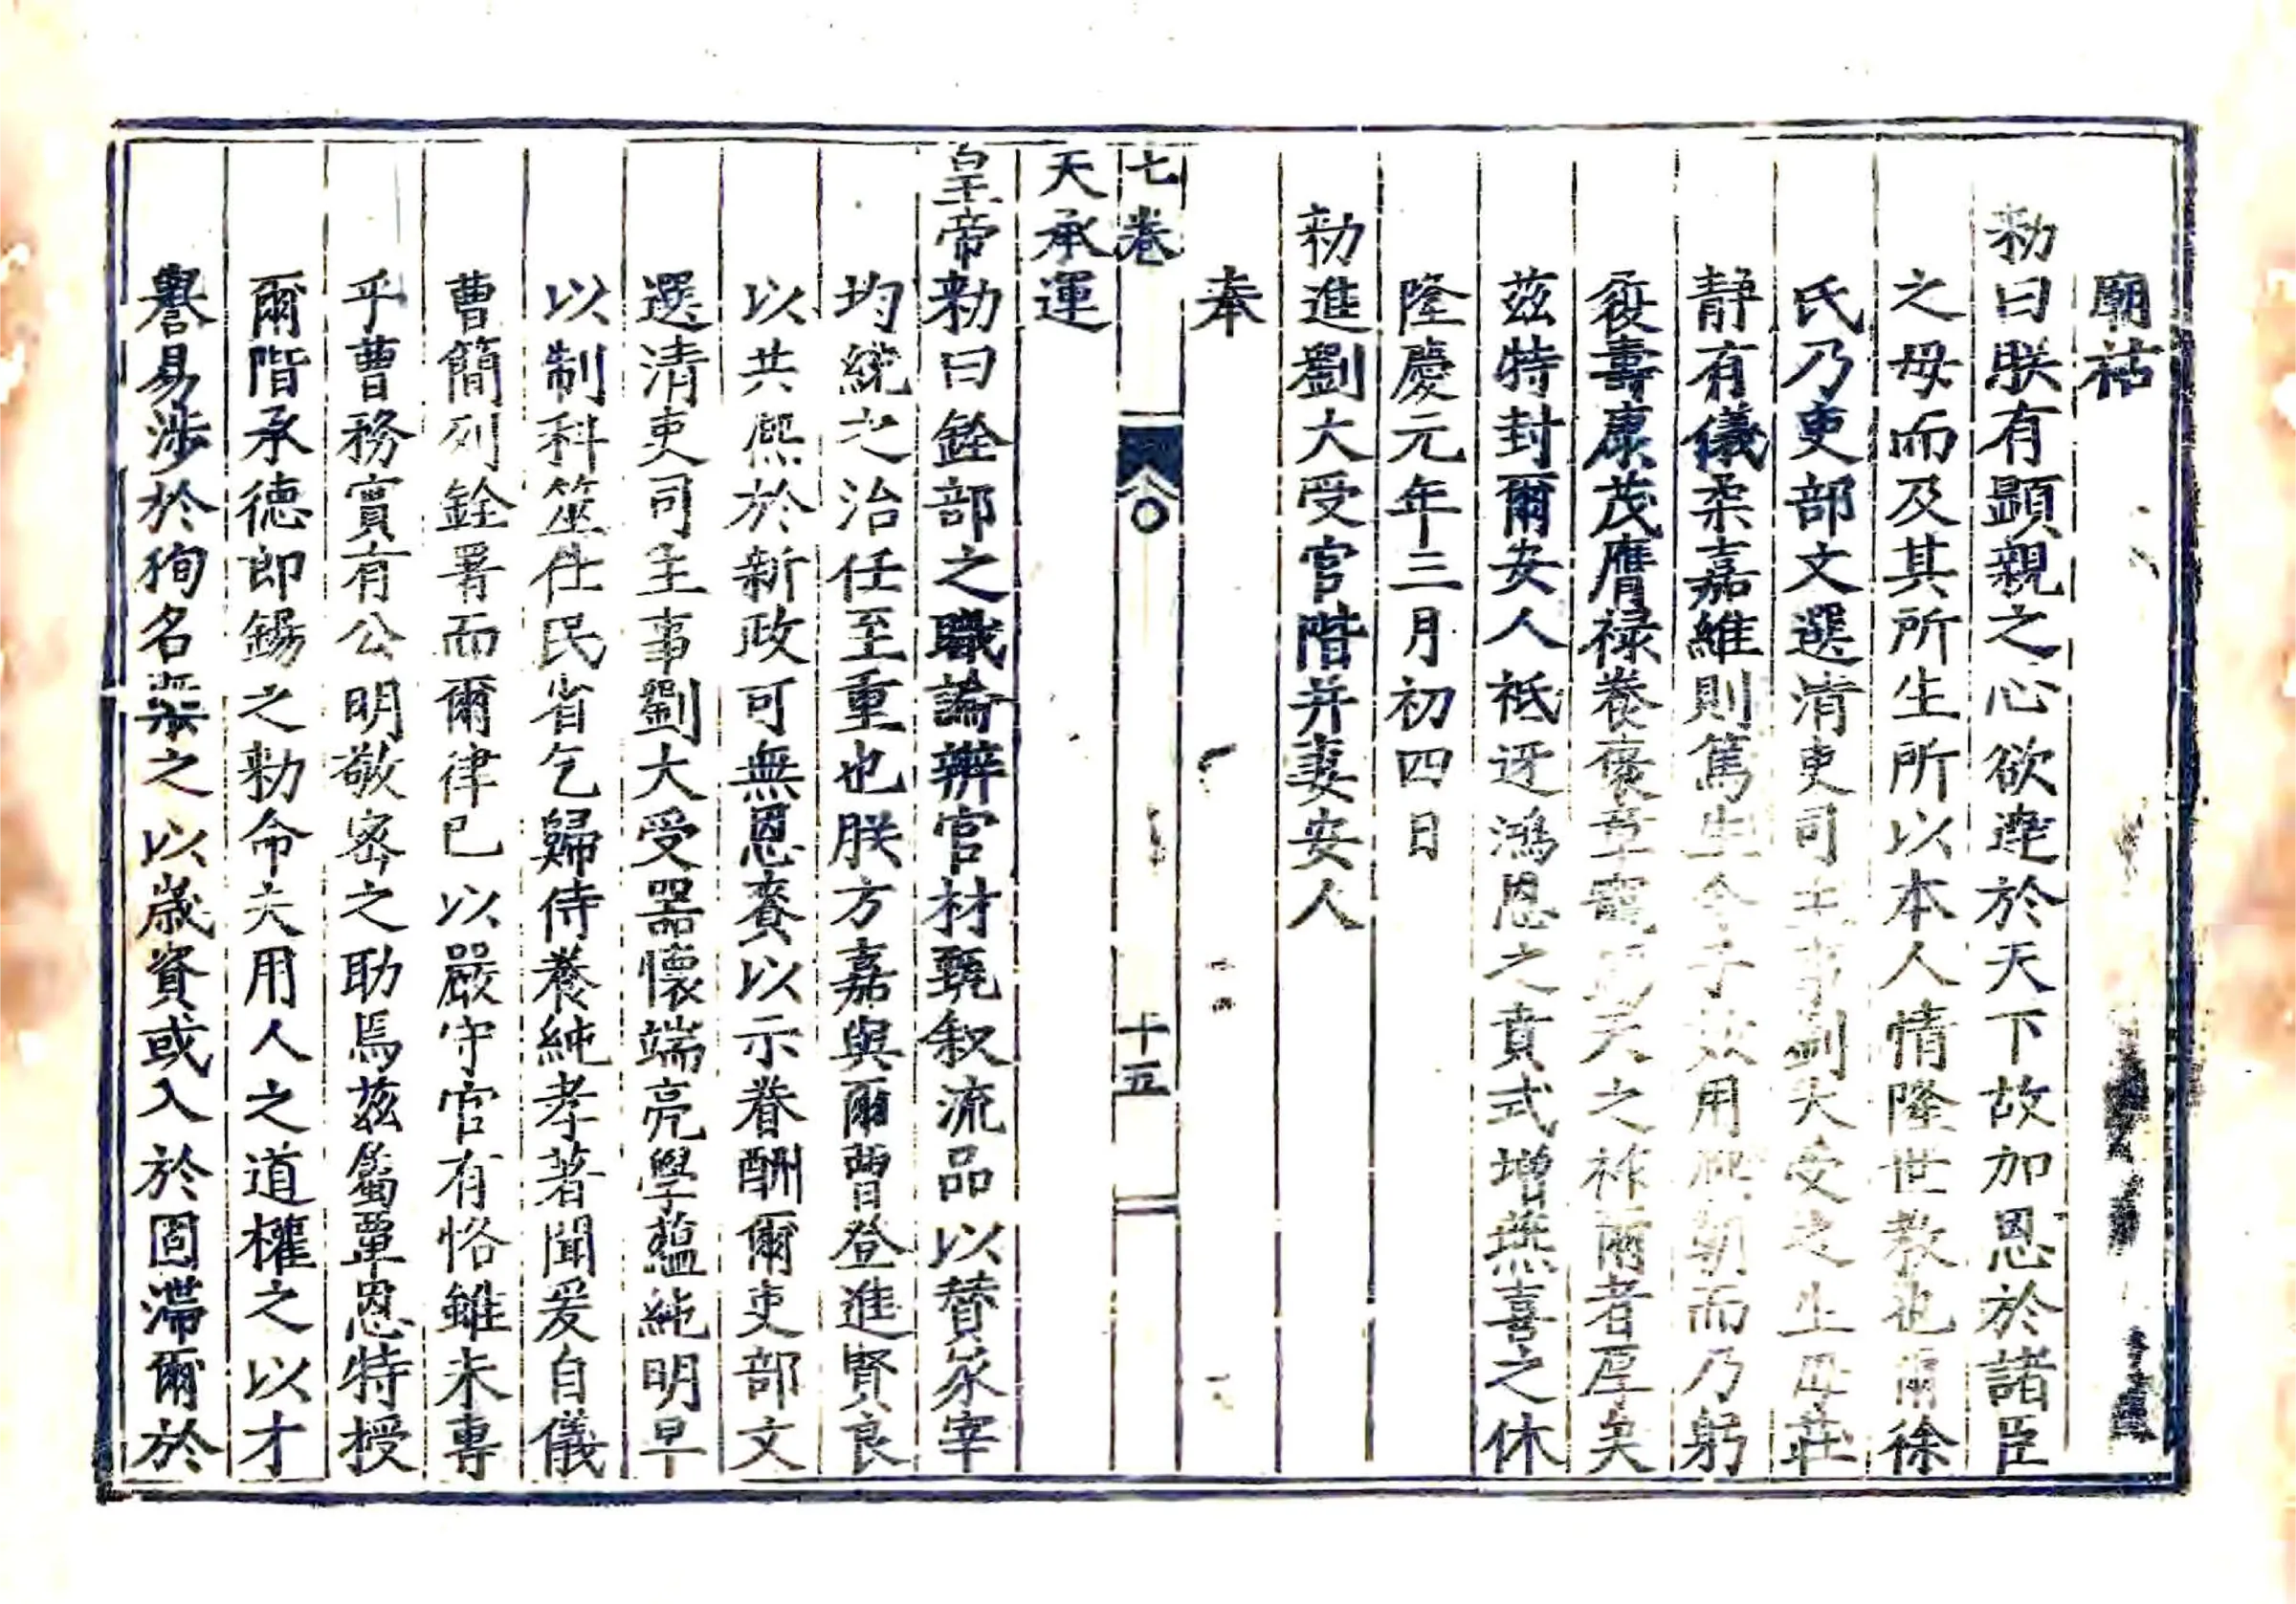 廟祜
勑曰朕有顯親之心欲達於天下故加恩於諸臣
之母而及其所生所以本人情隆世教也爾徐
氏乃吏部文選清吏司主事劉大受之生母莊
靜有儀柔嘉維則篤生令子效用熙朝而乃躬
履壽康茂膺禄養褒章寵天之祚爾者厚矣
茲特封爾安人祗迓鴻恩之賁式增燕喜之休
隆慶元年三月初四日
勑進劉大受官階并妻安人
奉
七卷 十五
天承運
皇帝勑曰銓部之職論辨官材甄叙流品以贊冢宰
均統之治任至重也朕方嘉與爾曹登進賢良
以共熙於新政可無恩賚以示眷酬爾吏部文
選清吏司主事劉大受器懷端亮學蘊純明早
以制科筮仕民省乞歸侍養純孝著聞爰自儀
曹簡列銓署而爾律己以嚴守官有恪雖未專
乎曹務實有公明敬密之助焉茲屬覃恩特授
爾階承德郎錫之勑命夫用人之道權之以才
譽易涉於狥名槩之以歲資或入於固滯爾於